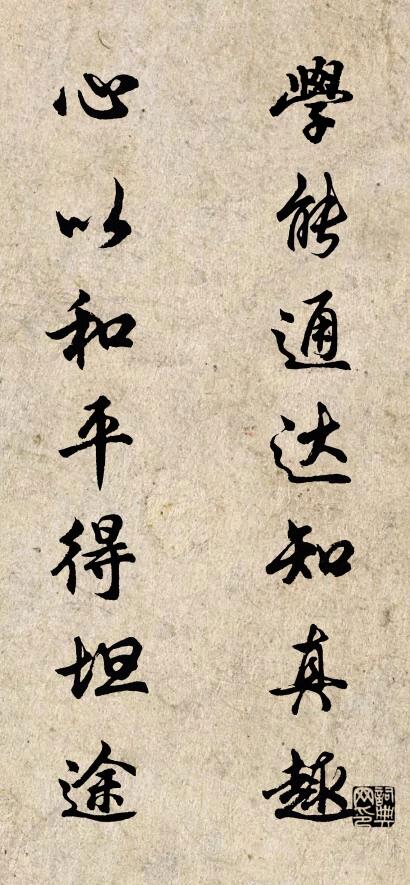 學能通达知真趣
心以和平得坦途
詞典網印